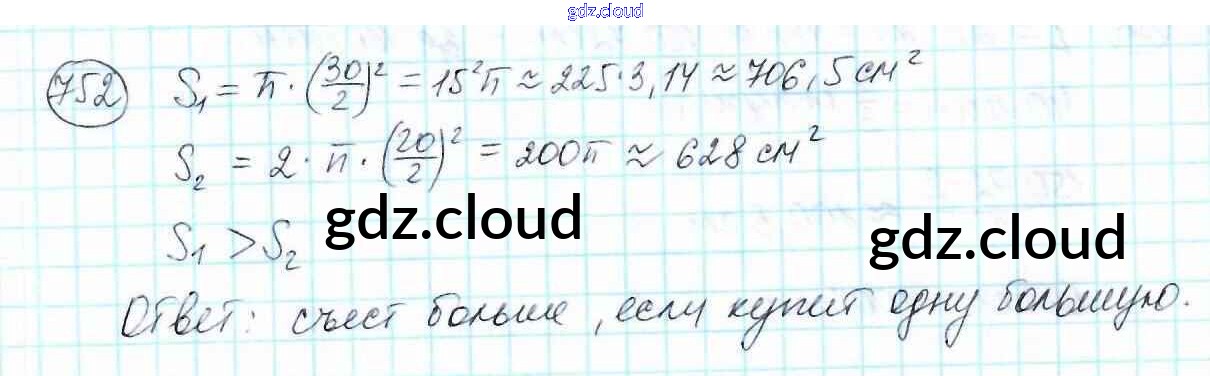 gdz.cloud
752 S₁ = π · (30/2)² = 15²π ≈ 225·3,14 ≈ 706,5 см²
S₂ = 2 · π · (20/2)² = 200π ≈ 628 см²
gdz.cloud
gdz.cloud
S₁ > S₂
Ответ: съест больше, если купит одну большую.